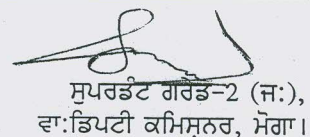 ਸੁਪਰਡੰਟ ਗਰੇਡ-2 (ਜ:),
ਵਾ:ਡਿਪਟੀ ਕਮਿਸ਼ਨਰ, ਮੋਗਾ।